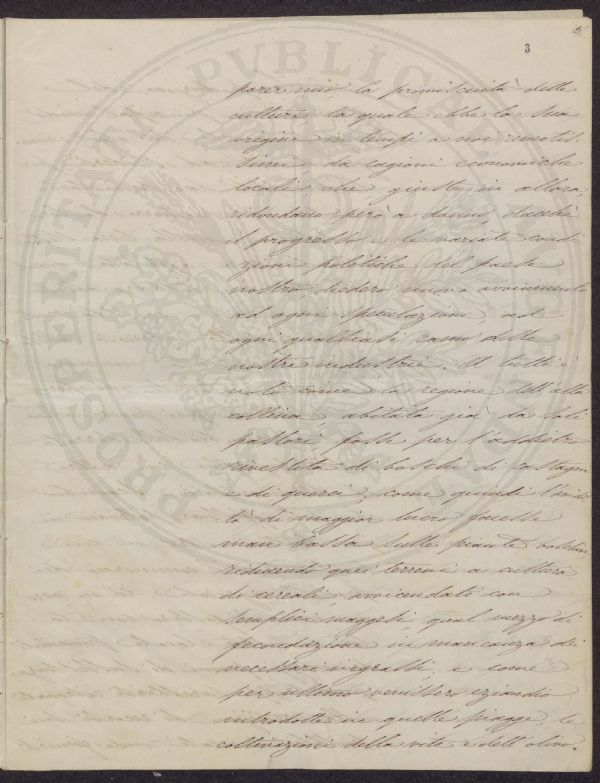 3
parer mio, la promiscuità delle
culture la quale ebbe la sua
origine in tempi a noi remotis-
simi da cagioni economiche
locali che giuste in allora,
ridondano però a danno dacchè
il progresso e le variate condi-
zioni politiche del paese
nostro, diedero nuovo avviamento
ad ogni speculazione, ad
ogni qualsiasi ramo delle
nostre industrie. A tutti è
noto come la regione dell'alta
collina, abitata già da soli
pastori, fosse per l'addietro
rivestita di boschi di castagni
e di querci, come quindi l'avidi-
tà di maggior lucro facesse
man bassa sulle piante boschive
riducendo quei terreni a cultura
di cereali, avvicendata con
semplici maggesi, qual mezzo di
fecondazione in mancanza dei
necessari ingrassi, e come
per ultimo venissero eziandio
introdotte in quelle piagge le
coltivazioni della vite e dell'olivo.
PVBLICAE
PROSPERITATI